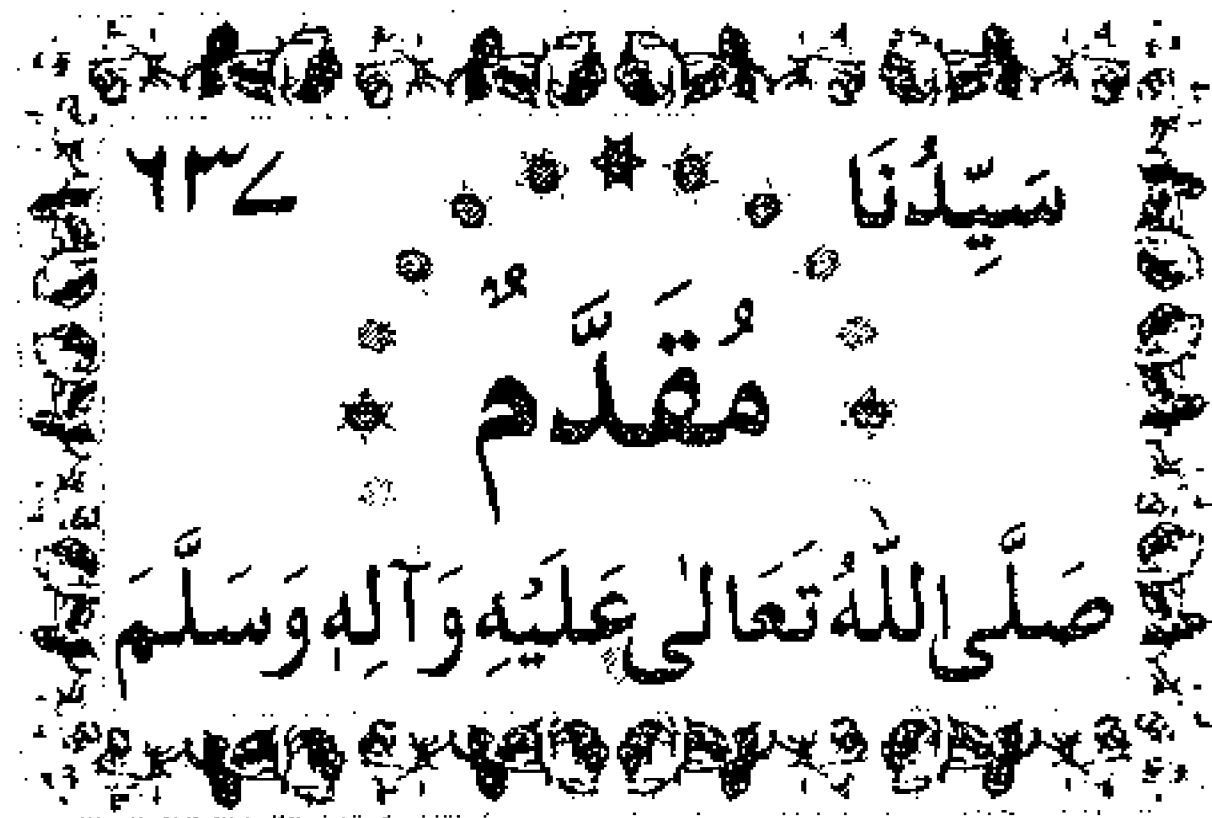 سَيِّدُنَا ٦٣٧
مُقَدَّمٌ
صَلَّى اللّٰهُ تَعَالٰى عَلَيْهِ وَآلِهٖ وَسَلَّمَ